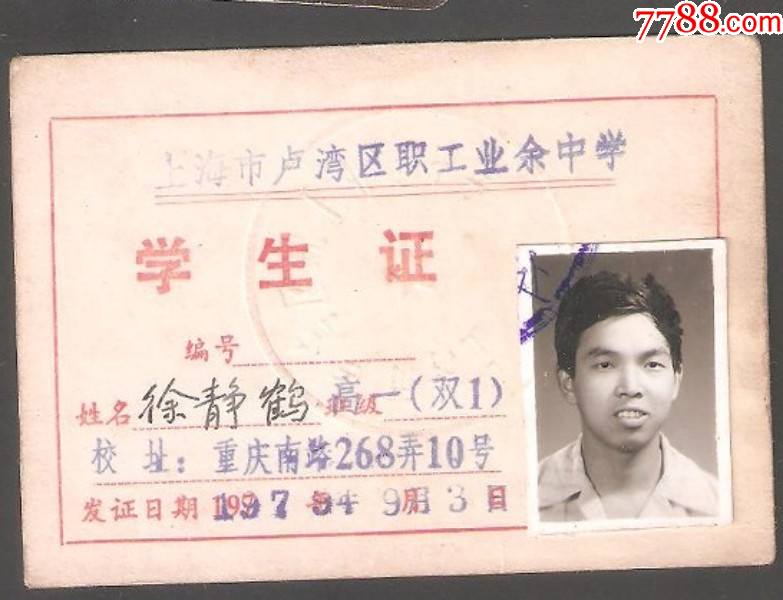 7788.com
上海市卢湾区职工业余中学
学生证
编号
姓名 徐静鹤 班级 高一(双1)
校址：重庆南路268弄10号
发证日期 197 年 9月3日